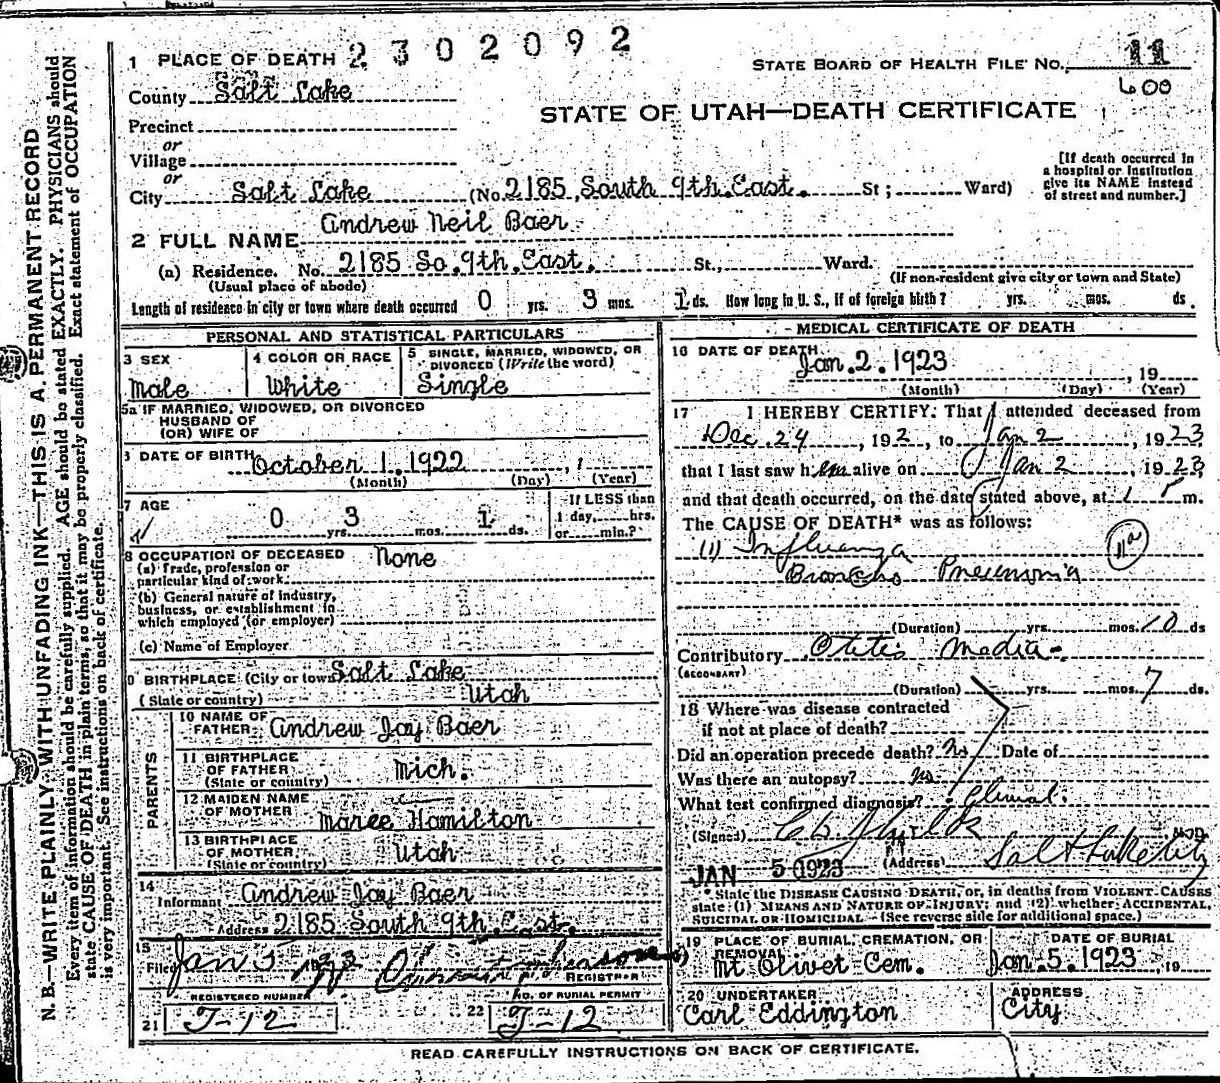 1 PLACE OF DEATH 2302092
STATE BOARD OF HEALTH FILE No. 11
600
County Salt Lake
STATE OF UTAH—DEATH CERTIFICATE
Precinct
or
Village
or
[If death occurred in a hospital or institution give its NAME instead of street and number.]
City Salt Lake (No. 2185 South 9th East. St; Ward)
2 FULL NAME Andrew Neil Baer
(a) Residence. No. 2185 So. 9th. East. St., Ward.
(Usual place of abode) (If non-resident give city or town and State)
Length of residence in city or town where death occurred 0 yrs. 3 mos. 1 ds. How long in U. S., if of foreign birth? yrs. mos. ds.
PERSONAL AND STATISTICAL PARTICULARS
3 SEX Male
4 COLOR OR RACE White
5 SINGLE, MARRIED, WIDOWED, OR DIVORCED (Write the word) Single
5a IF MARRIED, WIDOWED, OR DIVORCED
HUSBAND OF
(OR) WIFE OF
6 DATE OF BIRTH October 1. 1922
(Month) (Day) (Year)
7 AGE 0 yrs. 3 mos. 1 ds.
If LESS than
1 day, hrs.
or min.?
8 OCCUPATION OF DECEASED None
(a) Trade, profession or
particular kind of work
(b) General nature of industry,
business, or establishment in
which employed (or employer)
(c) Name of Employer
9 BIRTHPLACE (City or town) Salt Lake
(State or country) Utah
PARENTS
10 NAME OF FATHER Andrew Jay Baer
11 BIRTHPLACE OF FATHER (State or country) Mich.
12 MAIDEN NAME OF MOTHER Maree Hamilton
13 BIRTHPLACE OF MOTHER (State or country) Utah
14 Informant Andrew Jay Baer
Address 2185 South 9th. East.
15 Filed Jan 5 1923 REGISTRAR
REGISTERED NUMBER
21 J-12
NO. OF BURIAL PERMIT
22 J-12
MEDICAL CERTIFICATE OF DEATH
16 DATE OF DEATH Jan. 2. 1923, 19
(Month) (Day) (Year)
17 I HEREBY CERTIFY: That I attended deceased from
Dec. 24, 192, to Jan 2, 1923
that I last saw him alive on Jan 2, 1923,
and that death occurred, on the date stated above, at 1 P m.
The CAUSE OF DEATH* was as follows:
(1) Influenza 11a
Broncho Pneumonia
(Duration) yrs. mos. 10 ds
Contributory Otitis Media
(SECONDARY)
(Duration) yrs. mos. 7 ds.
18 Where was disease contracted
if not at place of death?
Did an operation precede death? No Date of
Was there an autopsy? no
What test confirmed diagnosis? Clinical.
(Signed) M.D.
JAN 5 1923 (Address) Salt Lake City
* State the DISEASE CAUSING DEATH, or, in deaths from VIOLENT CAUSES
state: (1) MEANS AND NATURE OF INJURY; and (2) whether ACCIDENTAL,
SUICIDAL OR HOMICIDAL (See reverse side for additional space.)
19 PLACE OF BURIAL, CREMATION, OR REMOVAL Mt Olivet Cem.
DATE OF BURIAL Jan. 5. 1923, 19
20 UNDERTAKER Carl Eddington
ADDRESS City
READ CAREFULLY INSTRUCTIONS ON BACK OF CERTIFICATE.
N. B.—WRITE PLAINLY WITH UNFADING INK—THIS IS A PERMANENT RECORD
Every item of information should be carefully supplied. AGE should be stated EXACTLY. PHYSICIANS should
state CAUSE OF DEATH in plain terms, so that it may be properly classified. Exact statement of OCCUPATION
is very important. See instructions on back of certificate.